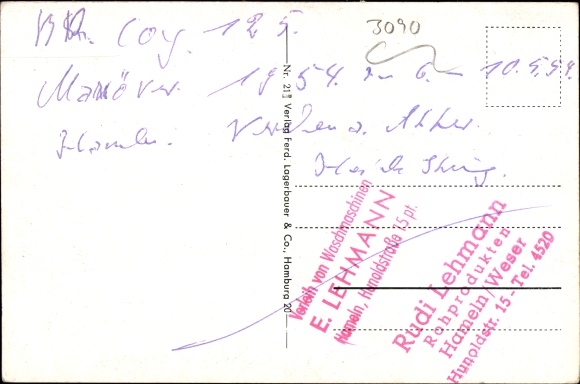 Coy. 125.
3090
Manöver 1954. 6. - 10.5.54.
Verden a. Aller.
Nr. 218 Verlag Ferd. Lagerbauer & Co., Hamburg 20
Verleih von Waschmaschinen
E. LEHMANN
Hameln, Hunoldstraße 15 pt.
Rudi Lehmann
Rohprodukten
Hameln/Weser
Hunoldstr. 15 - Tel. 4520